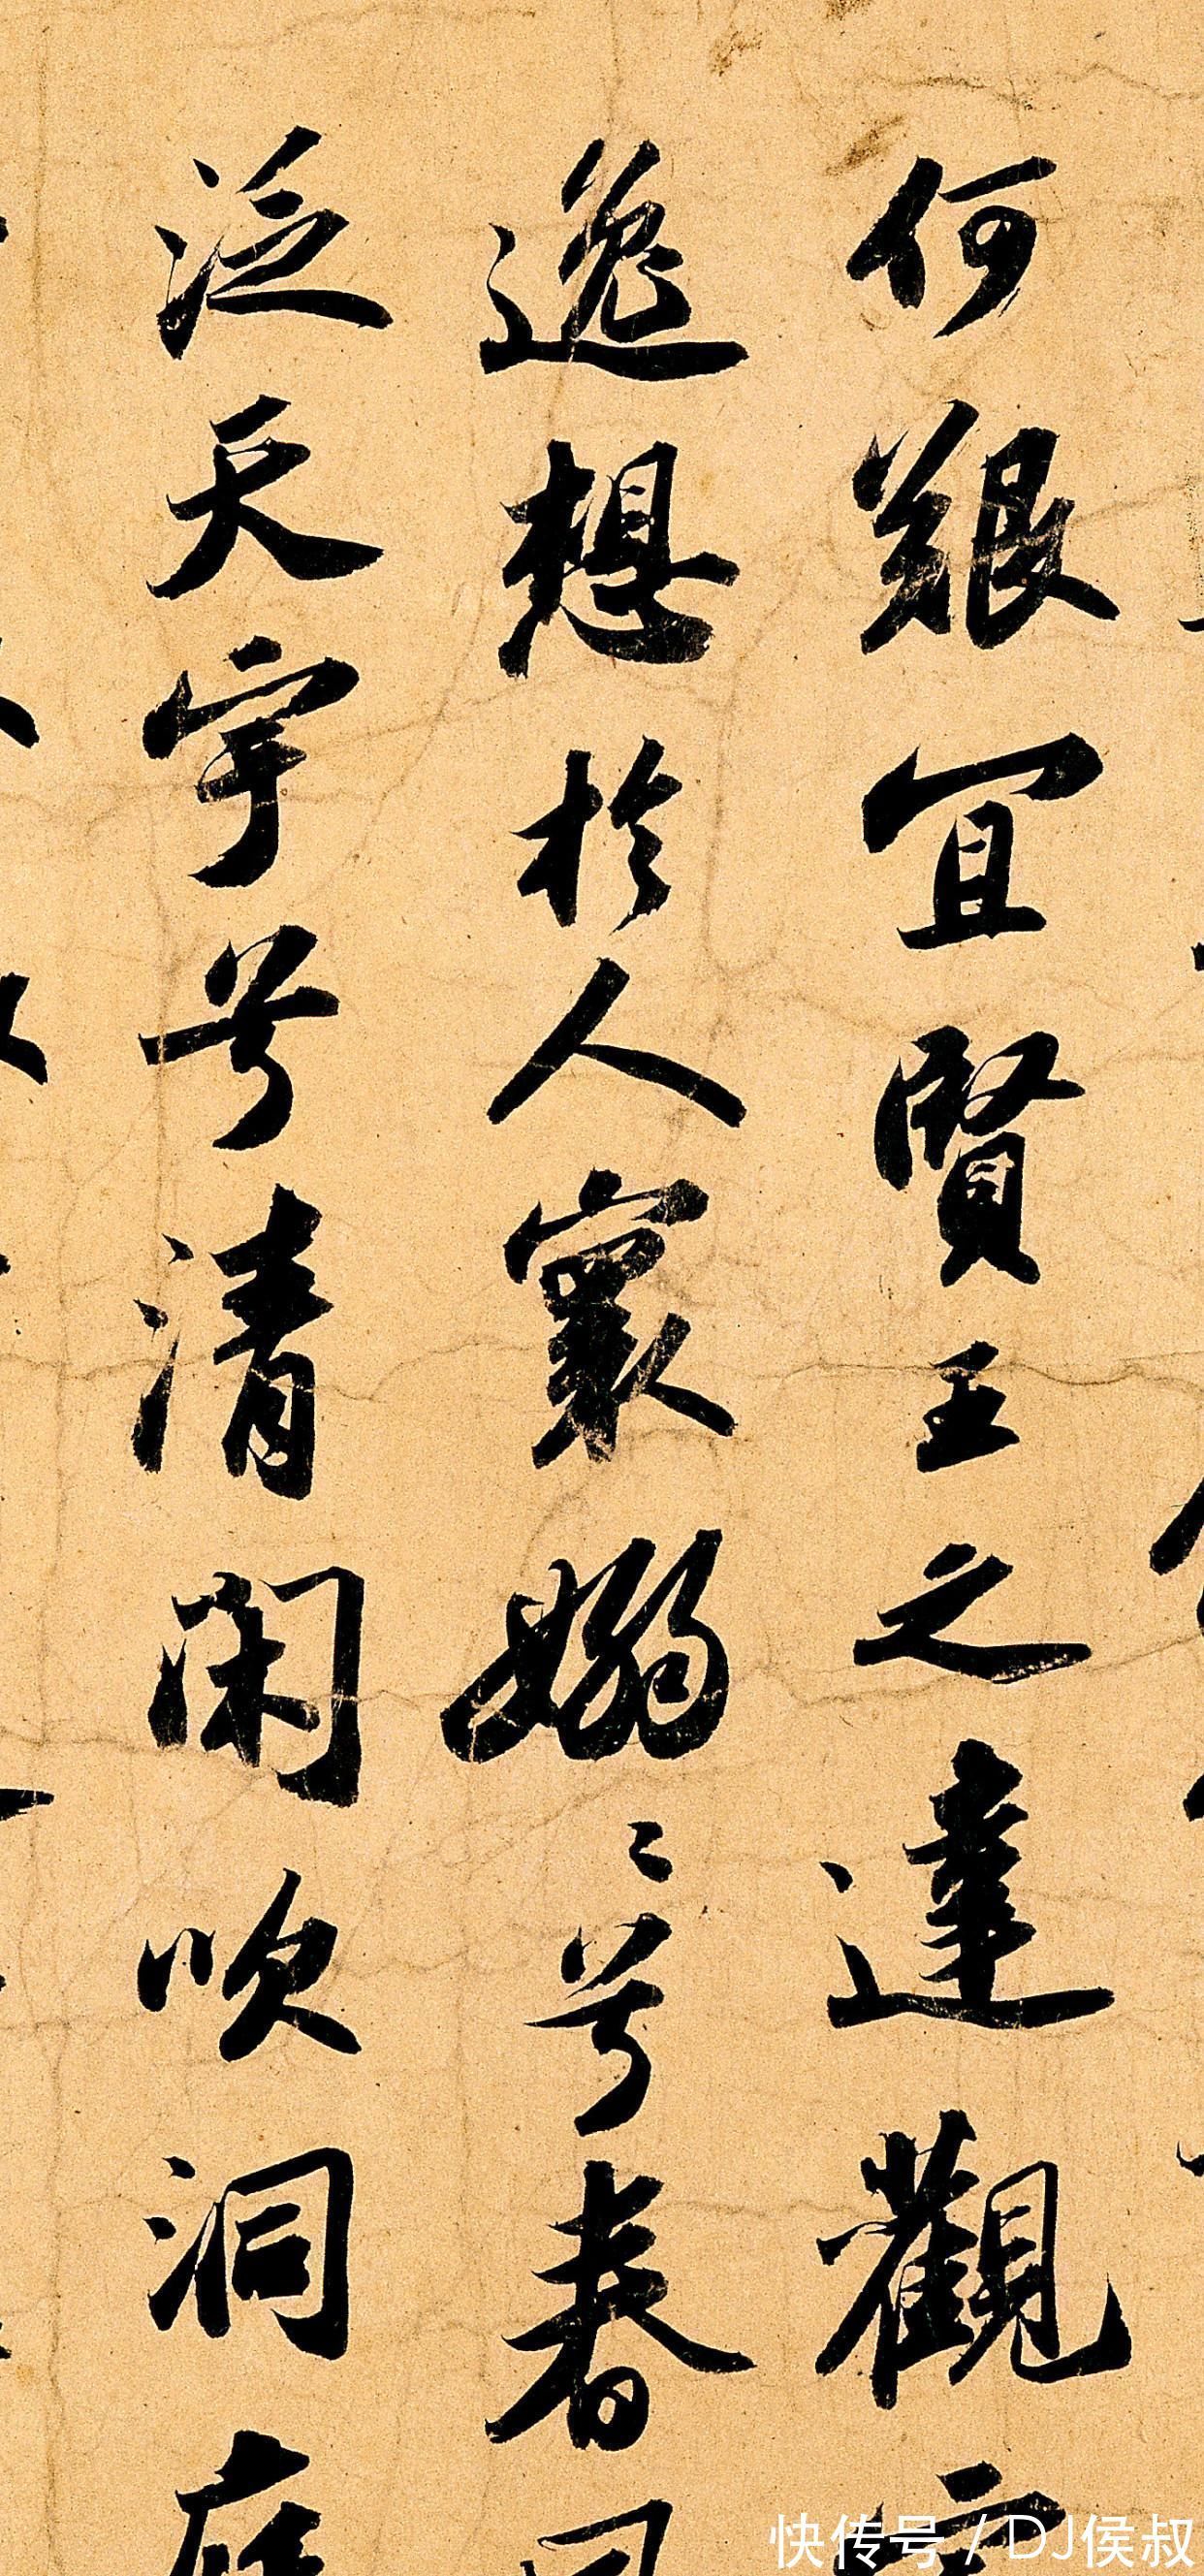 何艱宜賢王之達觀寄
逸想於人寰嫋〻兮春風
泛天宇兮清閑吹洞庭
快传号 / DJ侯叔